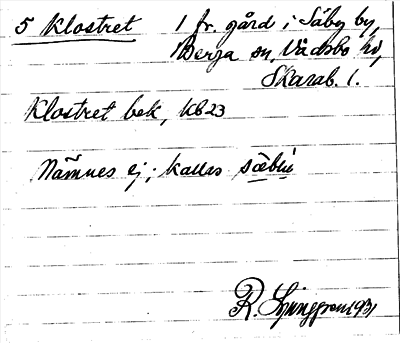 5 Klostret 1 fr. gård i Säby by,
Berga sn, Vadsbo hd,
Skarab. l.
Klostret bek, KB23
Nämnes ej; kallas sœbɯ
R. Ljunggren 1931